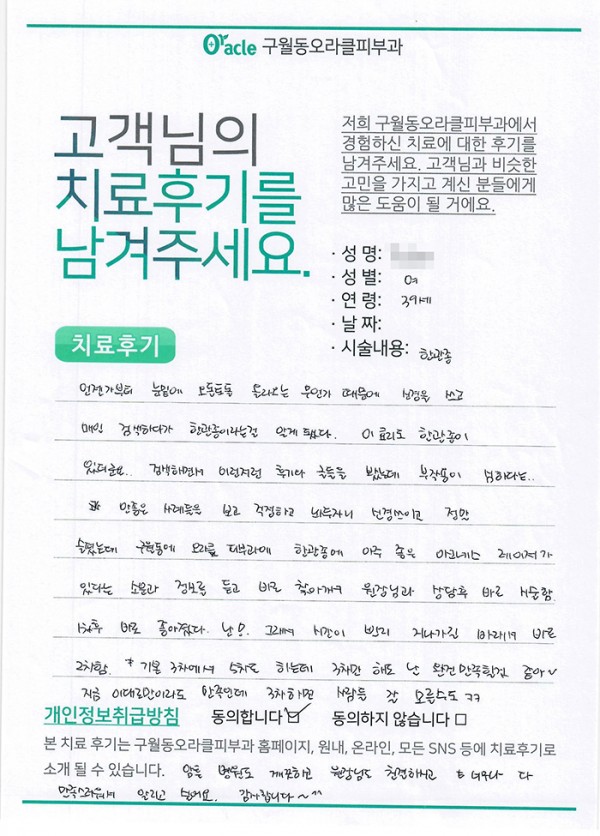 Oracle 구월동오라클피부과
고객님의
치료후기를
남겨주세요.
저희 구월동오라클피부과에서
경험하신 치료에 대한 후기를
남겨주세요. 고객님과 비슷한
고민을 가지고 계신 분들에게
많은 도움이 될 거에요.
· 성 명:
· 성 별: 여
· 연 령: 39세
· 날 짜:
· 시술내용: 한관종
치료후기
언젠가부터 눈밑에 오돌토돌 올라오는 무언가 때문에 신경을 쓰고
매일 검색하다가 한관종이라는걸 알게 됐다. 이효리도 한관종이
있더군요.. 검색하면서 이런저런 후기나 글들을 봤는데 부작용이 심하다는..
안좋은 사례들을 보고 걱정하고 놔두자니 신경쓰이고 정말
슬펐는데 구월동에 오라클 피부과에 한관종에 아주 좋은 아그네스 레이저가
있다는 소문과 정보를 듣고 바로 찾아가서 원장님과 상담후 바로 시술함.
1차후 바로 좋아졌다. 난 오. 그래서 시간이 빨리 지나가길 바라며 바로
2차함. * 기본 3차에서 5차도 하는데 3차만 해도 난 완전만족할것 같아
지금 이대로만이라도 만족인데 3차하면 사람들 감 모를수도 ㅋㅋ
개인정보취급방침 동의합니다 ☑ 동의하지 않습니다 □
본 치료 후기는 구월동오라클피부과 홈페이지, 원내, 온라인, 모든 SNS 등에 치료후기로
소개 될 수 있습니다. 암튼 병원도 깨끗하고 원장님도 친절하시고 너무나 다
만족스러워서 알리고 싶어요. 감사합니다~^^